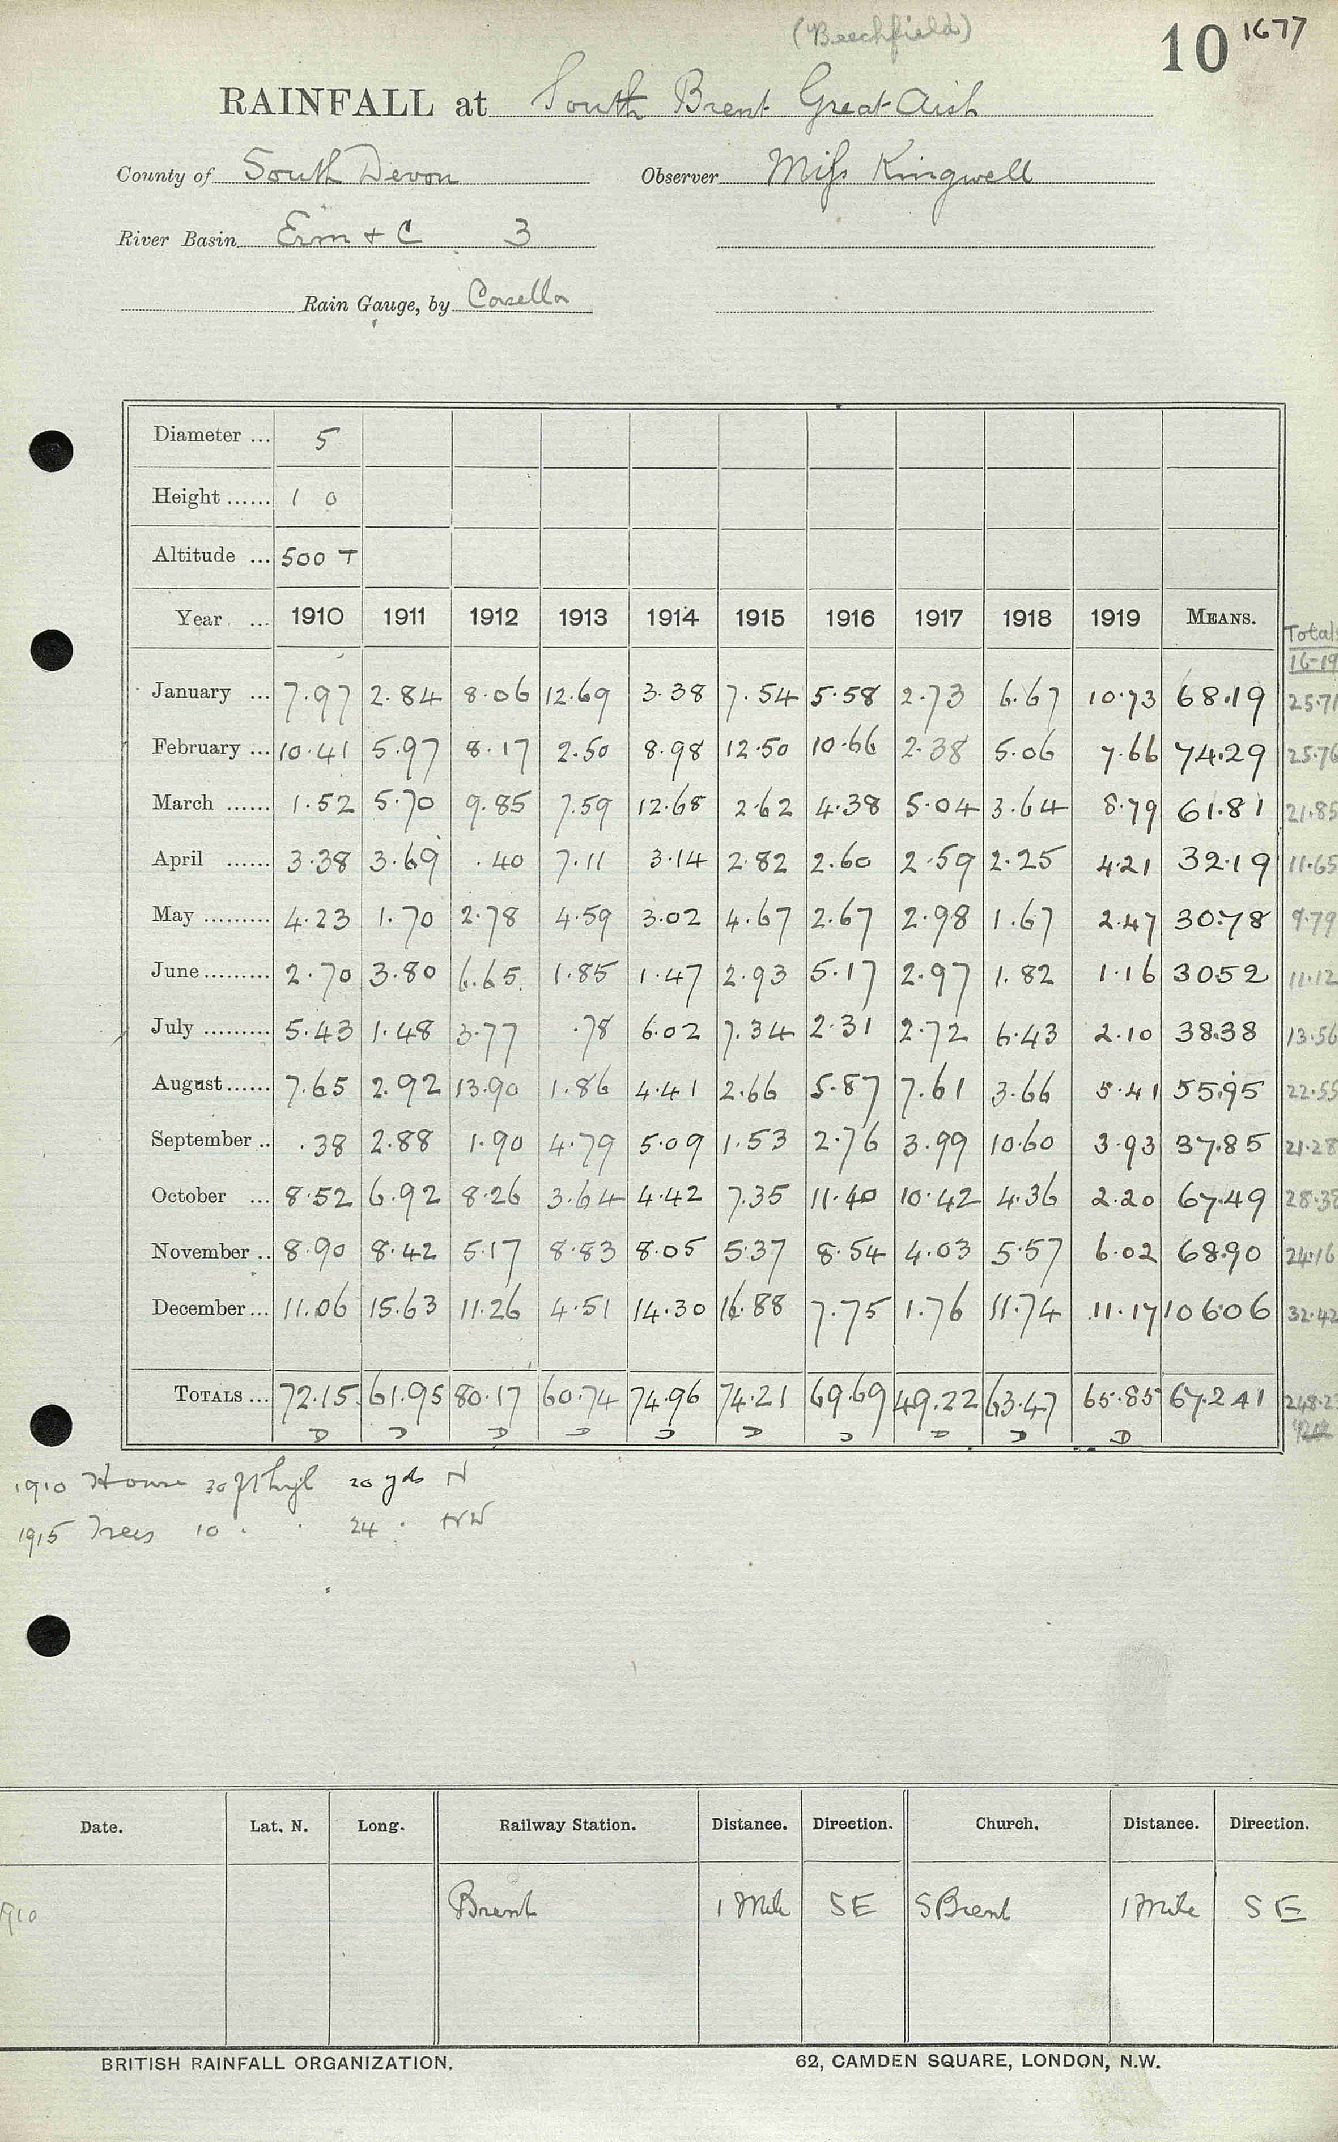 (Beechfield)
10 1677
RAINFALL at South Brent Great Aish
County of South Devon Observer Miss Kingwell
River Basin Erm + C 3
Rain Gauge, by Casella
Diameter ... 5
Height ...... 1 0
Altitude ... 500 T
Year ... 1910 1911 1912 1913 1914 1915 1916 1917 1918 1919 MEANS. Totals 16-19
January ... 7.97 2.84 8.06 12.69 3.38 7.54 5.58 2.73 6.67 10.73 68.19 25.71
February ... 10.41 5.97 8.17 2.50 8.98 12.50 10.66 2.38 5.06 7.66 74.29 25.76
March ...... 1.52 5.70 9.85 7.59 12.68 2.62 4.38 5.04 3.64 8.79 61.81 21.85
April ...... 3.38 3.69 .40 7.11 3.14 2.82 2.60 2.59 2.25 4.21 32.19 11.65
May ......... 4.23 1.70 2.78 4.59 3.02 4.67 2.67 2.98 1.67 2.47 30.78 9.79
June ......... 2.70 3.80 6.65 1.85 1.47 2.93 5.17 2.97 1.82 1.16 30.52 11.12
July ......... 5.43 1.48 3.77 .78 6.02 7.34 2.31 2.72 6.43 2.10 38.38 13.56
August ...... 7.65 2.92 13.90 1.86 4.41 2.66 5.87 7.61 3.66 5.41 55.95 22.55
September .. .38 2.88 1.90 4.79 5.09 1.53 2.76 3.99 10.60 3.93 37.85 21.28
October ... 8.52 6.92 8.26 3.64 4.42 7.35 11.40 10.42 4.36 2.20 67.49 28.38
November .. 8.90 8.42 5.17 8.83 8.05 5.37 8.54 4.03 5.57 6.02 68.90 24.16
December ... 11.06 15.63 11.26 4.51 14.30 16.88 7.75 1.76 11.74 11.17 106.06 32.42
TOTALS ... 72.15 61.95 80.17 60.74 74.96 74.21 69.69 49.22 63.47 65.85 67.241 248.23
D D D D D D D D D D
1910 House 30 ft high 20 yds N
1915 Trees 10 . . 24 . NW
Date. Lat. N. Long. Railway Station. Distance. Direction. Church. Distance. Direction.
1910 Brent 1 Mile SE S Brent 1 Mile SE
BRITISH RAINFALL ORGANIZATION. 62, CAMDEN SQUARE, LONDON, N.W.